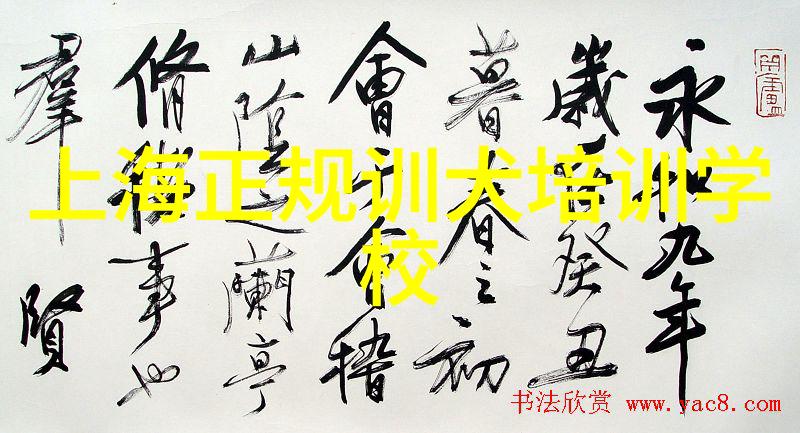 永和九年
歲在癸丑
暮春之初
會于會稽
山陰之蘭亭
脩禊事也
羣賢
上海正规训犬培训学
校
书法欣赏 www.yac8.com